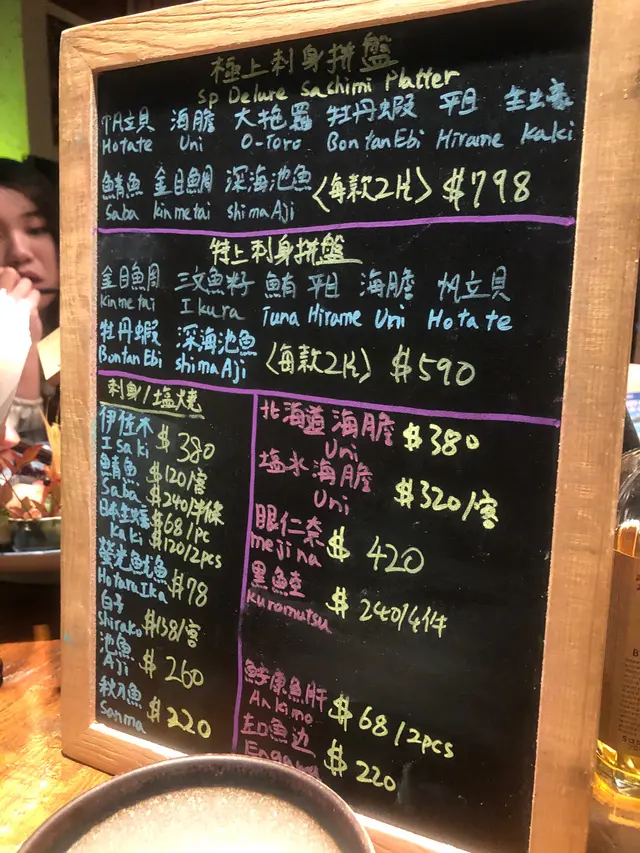 極上刺身拼盤
Sp Deluxe Sachimi Platter
帆立貝 海膽 大拖羅 牡丹蝦 平目 生蠔
Hotate Uni O-Toro BontanEbi Hirame Kaki
鯖魚 金目鯛 深海池魚 〈每款2片〉 $798
Saba kinmetai shimaAji
特上刺身拼盤
金目鯛 三文魚籽 鮪 平目 海膽 帆立貝
Kinmetai Ikura Tuna Hirame Uni Hotate
牡丹蝦 深海池魚 〈每款2片〉 $590
BontanEbi shimaAji
刺身/塩燒
伊佐木 $380
Isaki
鯖魚 $120/客
Saba $240/半條
日本生蠔 $68/1pc
Kaki $120/2pcs
螢光魷魚
HotaruIka $78
白子
shirako $138/客
池魚
Aji $260
秋刀魚
Sanma $220
北海道海膽 $380
Uni
塩水海膽 $320/客
Uni
眼仁奈
mejina $420
黑鯥
Kuromutsu $240/4件
鮟康魚肝
Ankimo $68/2pcs
左口魚边
Engawa $220